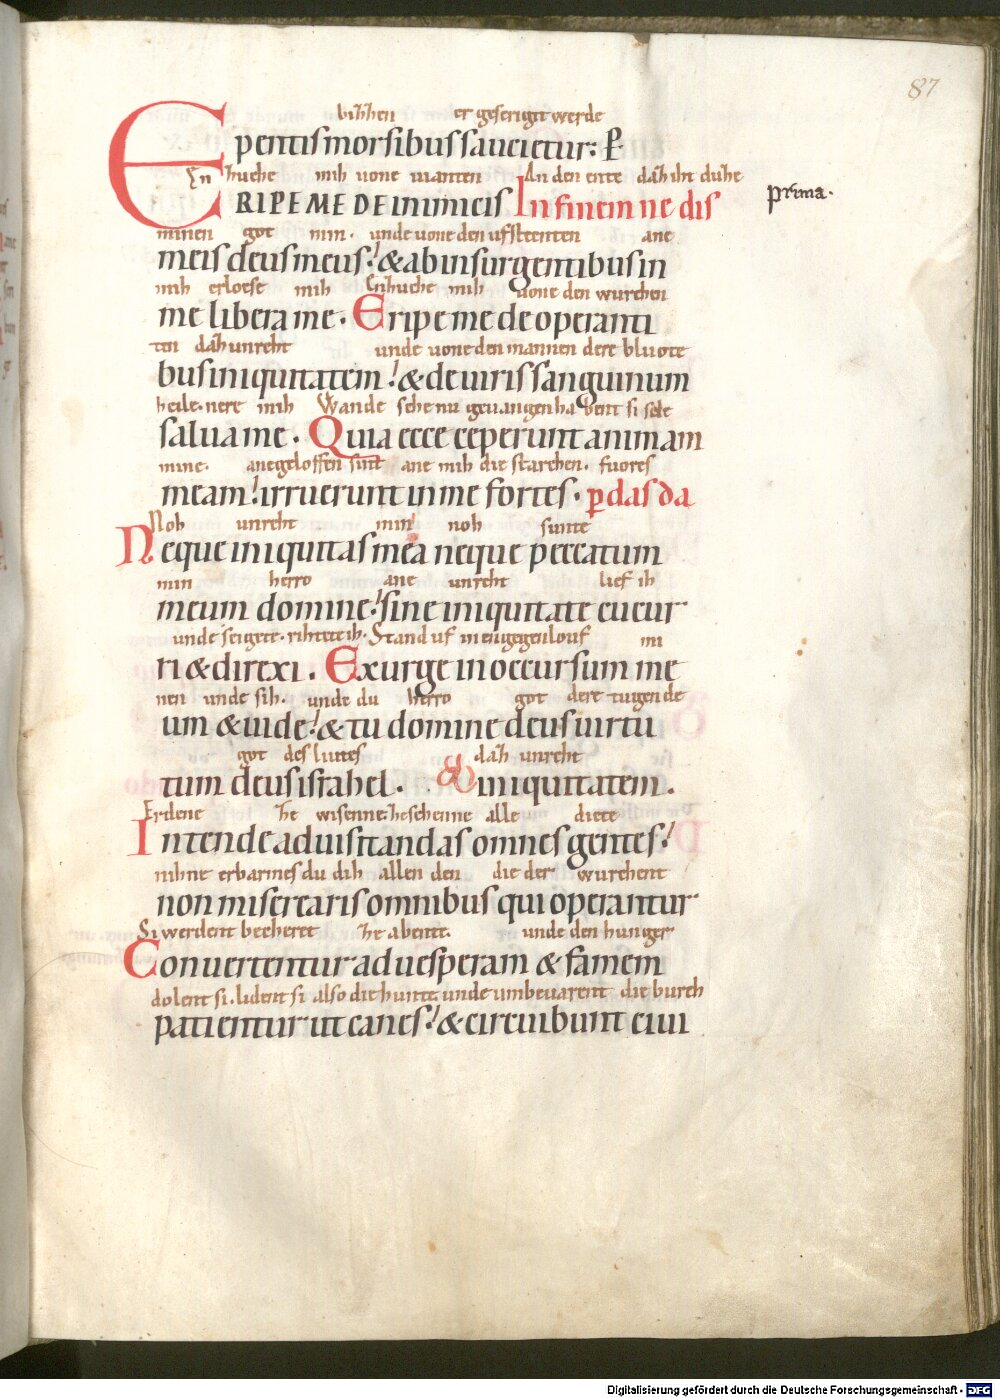 87
bihhen er geserigit werde
pentis morsibus saucietur: P
En zhuche mih uone manten An den ente dah iht duhe
ERIPE ME DE inimicis In finem ne dis
prima.
minen got min. unde uone den ufsteenten ane
meis deus meus: & ab insurgentibus in
mih erloese mih Enzhuche mih uone den wurchen
me libera me. Eripe me de operanti
ten dah unreht unde uone den mannen dere bluote
bus iniquitatem: & de uiris sanguinum
heile. nere mih Wande sehe nu geuangen habent si sele
salua me. Quia ecce ceperunt animam
mine. anegeloffen sint ane mih die starchen. fuores
meam: irruerunt in me fortes. pdas da
Noh unreht min noh sunte
Neque iniquitas mea neque peccatum
min herro ane unreht lief ih
meum domine: sine iniquitate cucur
unde seigete. rihtete ih. Stand uf in engegenlouf mi
ri & direxi. Exurge in occursum me
nen unde sih. unde du herro got dere tugende
um & uide: & tu domine deus uirtu
got des liutes dah unreht
tum deus israhel. iniquitatem.
Erdene zhe wisenne: beschenne alle diete
Intende ad uisitandas omnes gentes:
nihne erbarmes du dih allen den die der wurchent
non miserearis omnibus qui operantur
Si werdent becheret zhe abente. unde den hunger
Conuertentur ad uesperam & famem
dolent si. lident si also die hunte. unde umbeuarent die burch
patientur ut canes: & circuibunt ciui
Digitalisierung gefördert durch die Deutsche Forschungsgemeinschaft - DFG